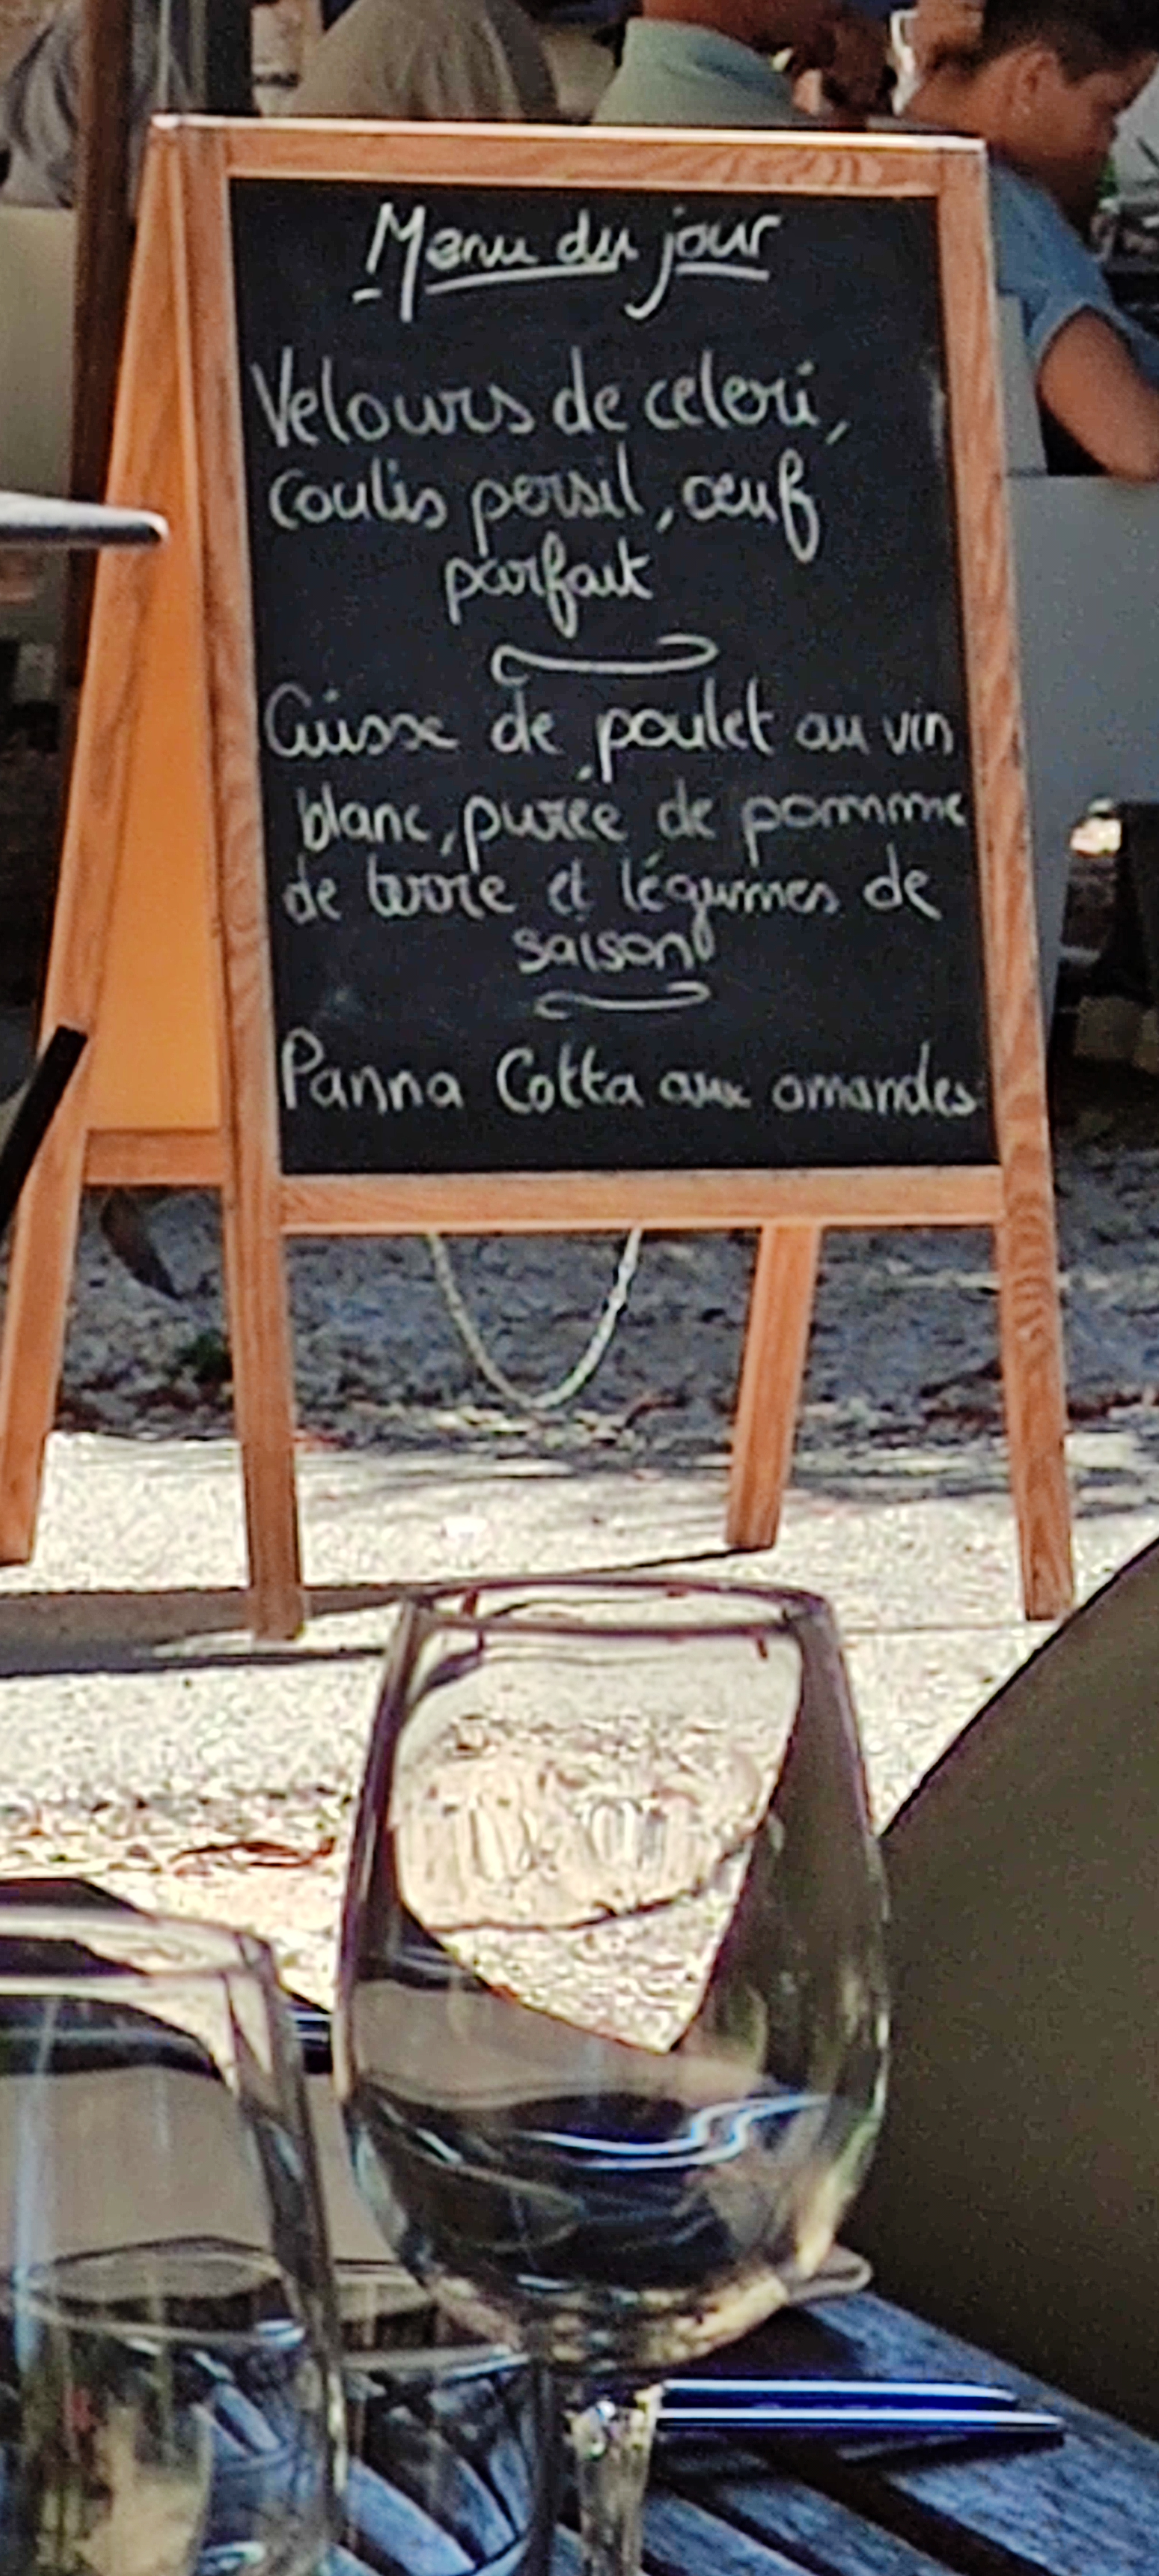 Menu du jour
Velours de celeri,
coulis persil, œuf
parfait
Cuisse de poulet au vin
blanc, purée de pomme
de terre et légumes de
saison
Panna Cotta aux amandes